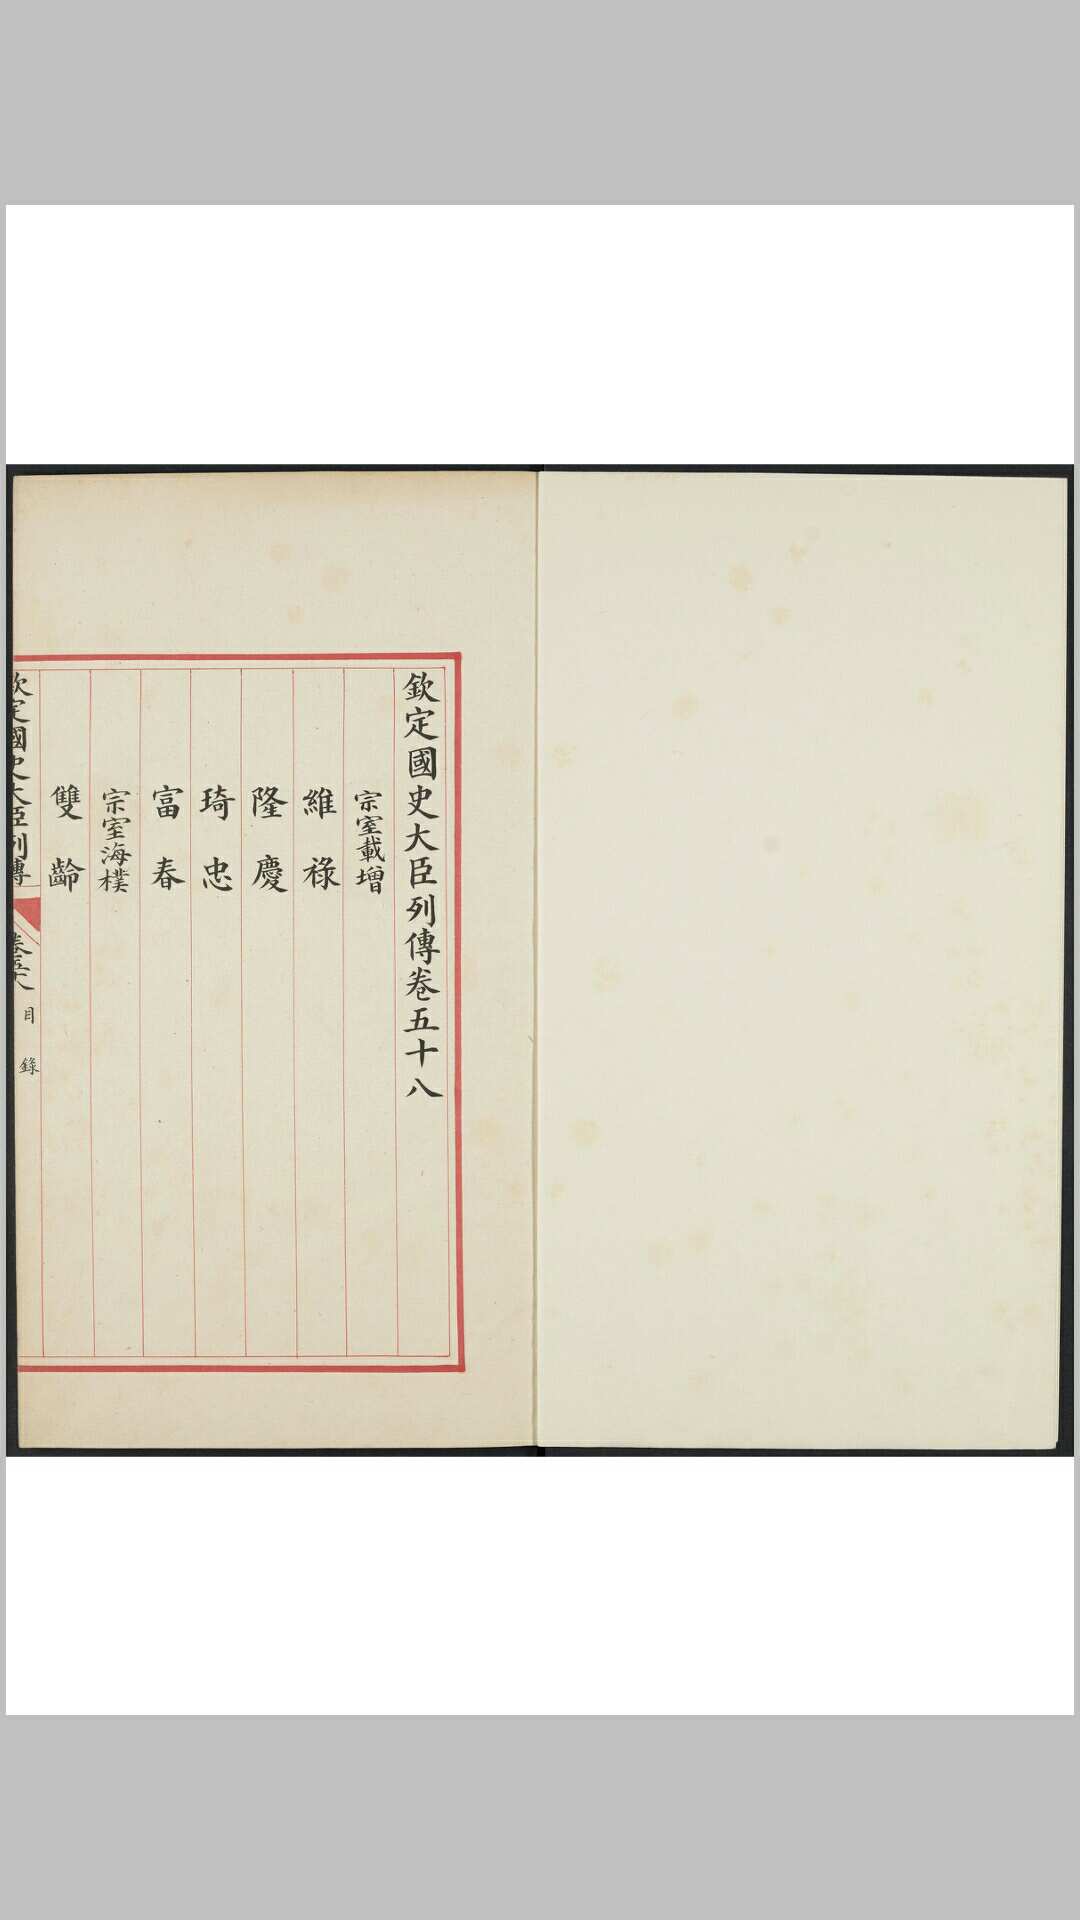 欽定國史大臣列傳卷五十八
宗室載增
維祿
隆慶
琦忠
富春
宗室海樸
雙齡
欽定國史大臣列傳
卷五十八
目錄